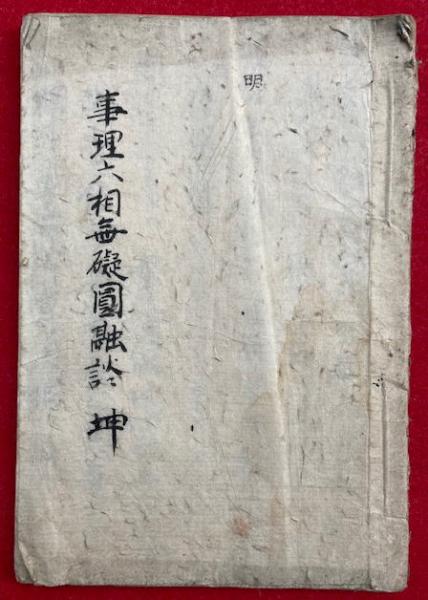 明
事理六相無礙圓融談 坤